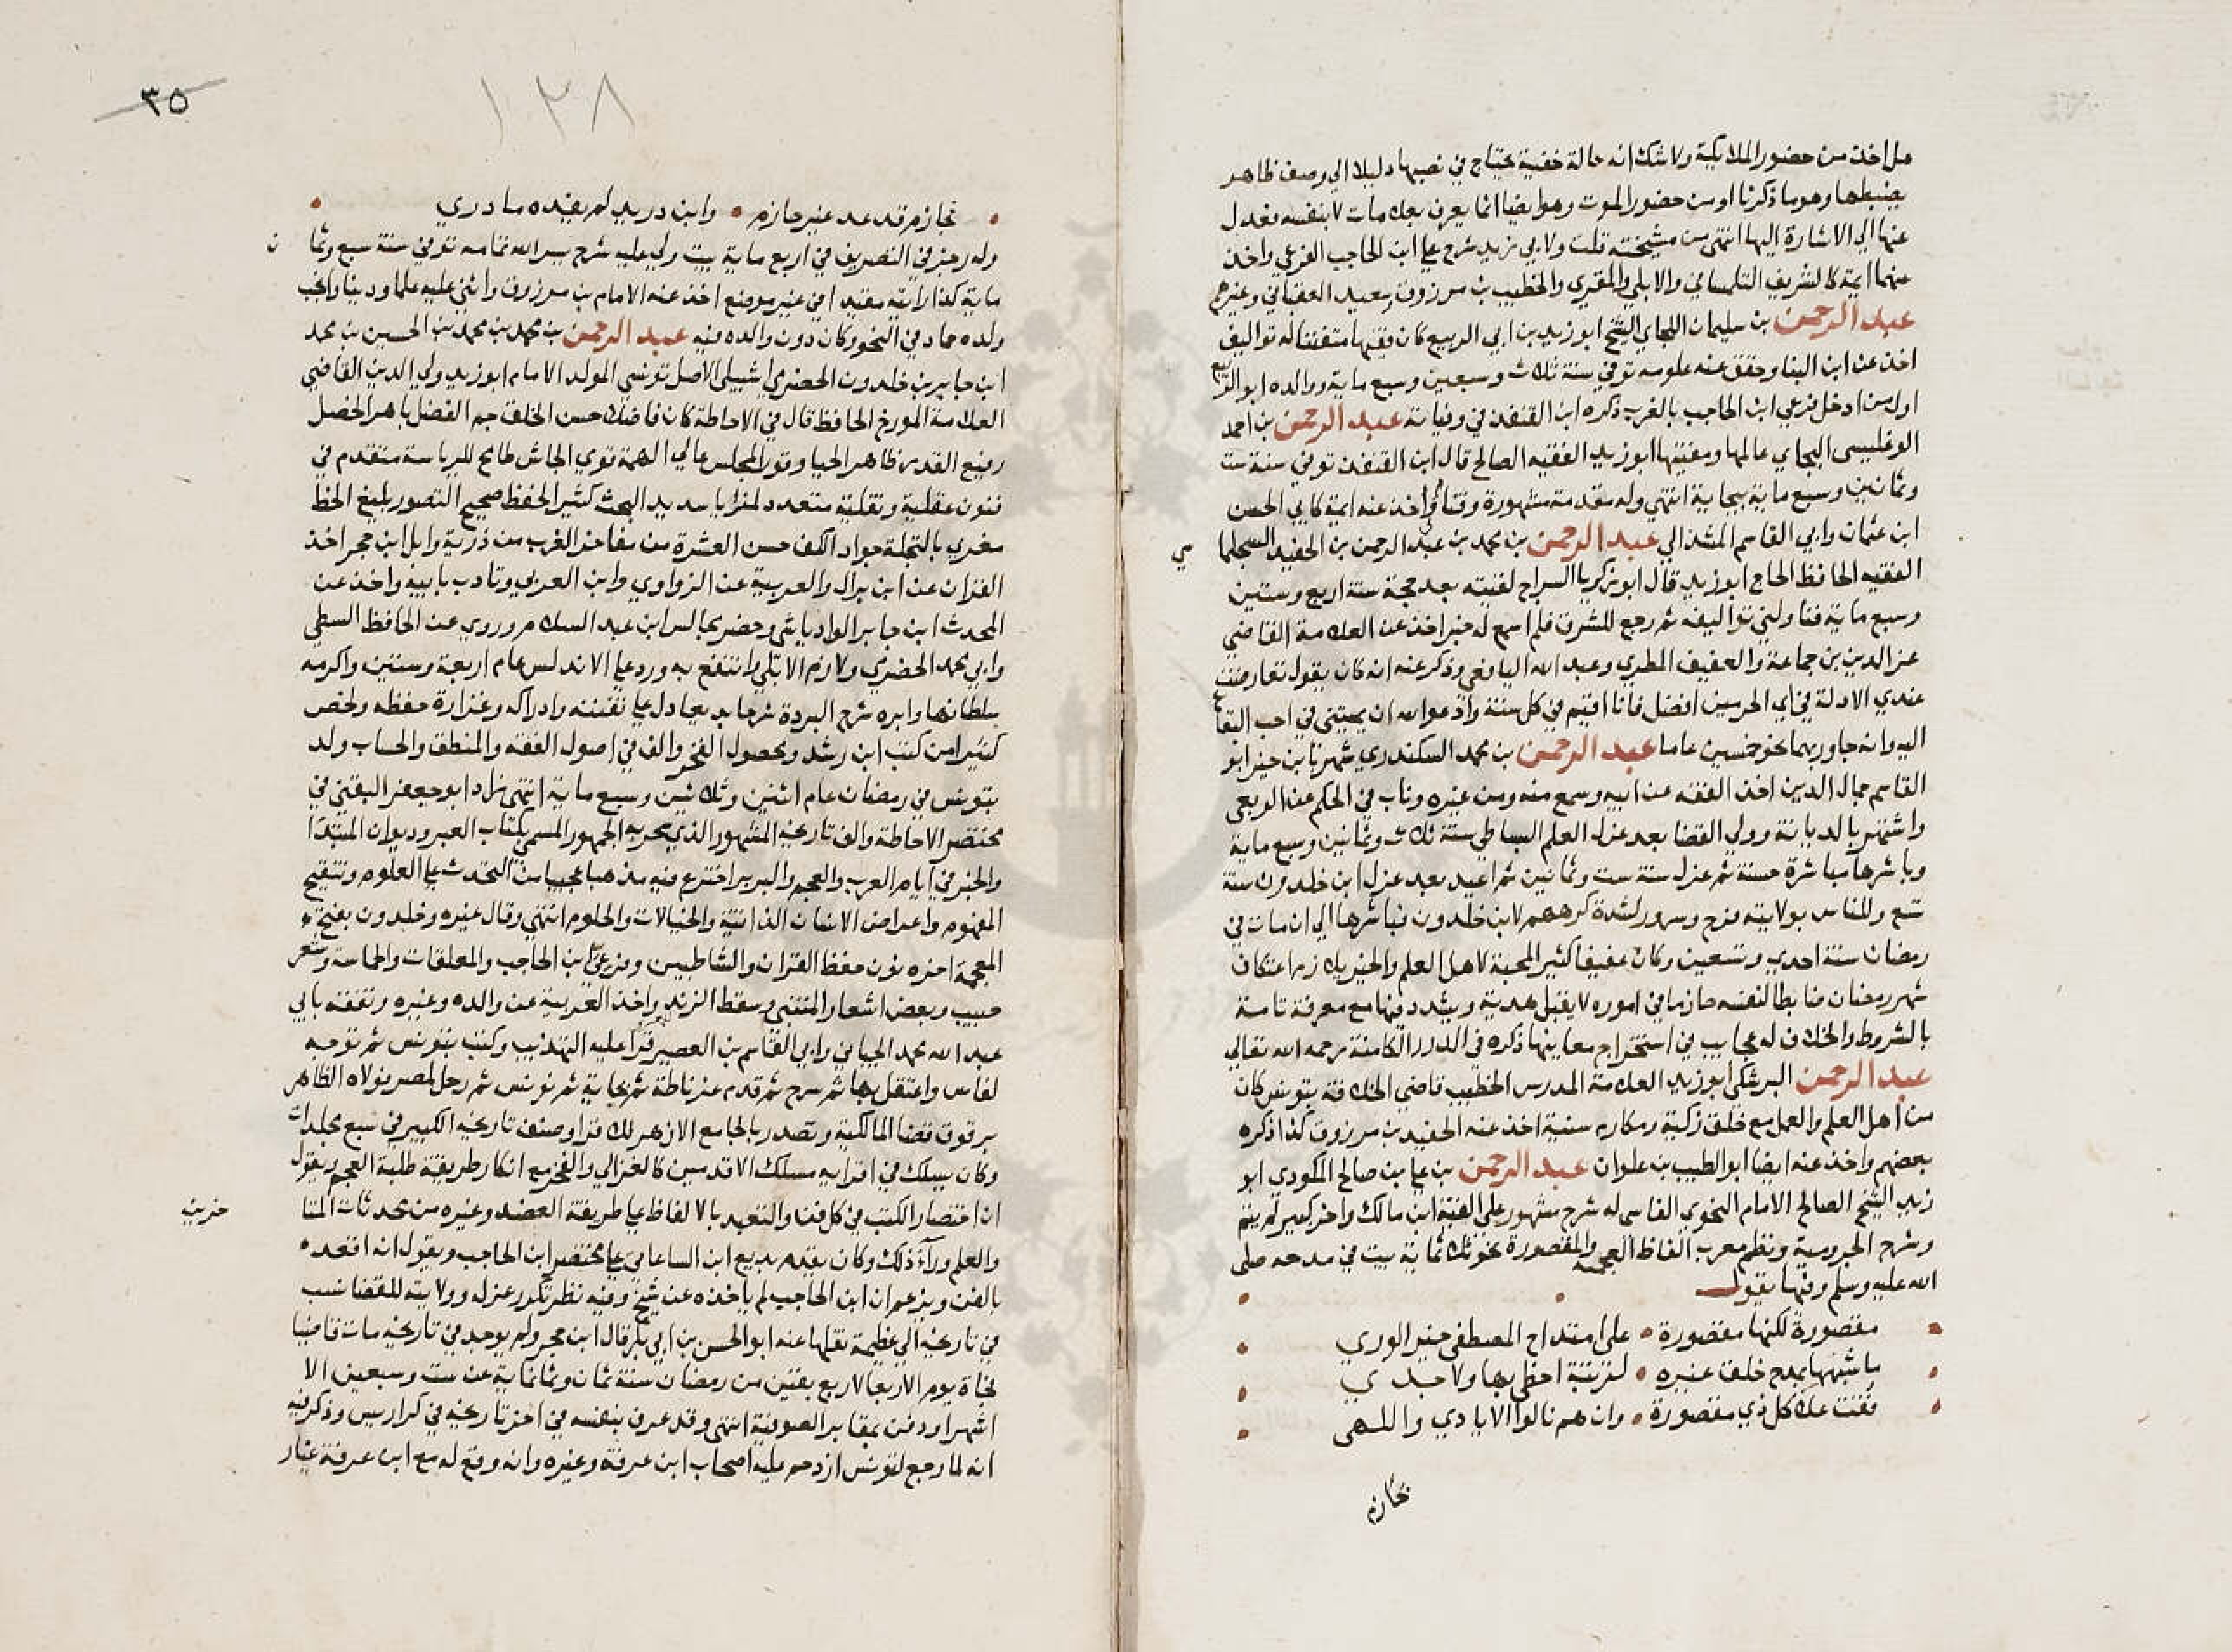 هل اخذ من حضور الملايكة ولا شك انه حالة خفية يحتاج في نصبها دليلا الي وصف ظاهر
يضبطها وهو ما ذكرنا او من حضور الموت وهو ايضا انما يعرف بعلامات لا بنفسه فعدل
عنها الي الاشارة اليها انتهي من مشيخته قلت ولابي زيد شرح علي ابن الحاجب الفرعي واخذ
عنهما ايمة كالشريف التلمساني والابلي والمقري والخطيب بن مرزوق وسعيد العقباني وغيرهم
عبد الرحمن بن سليمان اللجاي الشيخ ابو زيد بن ابي الربيع كان فقيها متفننا له تواليف
اخذ عن ابن البنا وحقق عنه علومه توفي سنة ثلاث وسبعين وسبع ماية ووالده ابو الربيع
اول من ادخل فرعي ابن الحاجب بالغرب ذكره ابن القنفذ في وفياته عبد الرحمن بن احمد
الوغليسي البجاي عالمها ومفتيها ابو زيد الفقيه الصالح قال ابن القنفذ توفي سنة ست
وثمانين وسبع ماية ببجاية انتهي وله مقدمة مشهورة وفتاوي اخذ عنه ايمة كابي الحسن
ابن عثمان وابي القاسم المشدالي عبد الرحمن بن محمد بن عبد الرحمن بن الحفيد السجلما سي
الفقيه الحافظ الحاج ابو زيد قال ابو زكريا السراج لقيته بعد حجة سنة اربع وستين
وسبع ماية فناولني تواليفه ثم رجع للمشرق فلم اسمع له خبرا اخذ عن العلامة القاضي
عز الدين بن جماعة والعفيف المطري وعبد الله اليافعي وذكر عنه انه كان يقول تعارضت
عندي الادلة في اي الحرمين افضل فانا اقيم في كل سنة وادعوا الله ان يميتني في احب البقاع
اليه وانه جاور بهما نحو خمسين عاما عبد الرحمن بن محمد السكندري شهر بابن خير ابو
القاسم جمال الدين اخذ الفقه عن ابيه وسمع منه ومن غيره وناب في الحكم عن الربعي
واشتهر بالديانة وولي القضا بعد عزل العلم البساطي سنة ثلاث وثمانين وسبع ماية
وباشرها مباشرة حسنة ثم عزل سنة ست وثمانين ثم اعيد بعد عزل ابن خلدون سنة
تسع وللناس بولايته فرح وسرور لشدة كرههم لابن خلدون فباشرها الي ان مات في
رمضان سنة احدي وتسعين وكان عفيفا كثير المحبة لاهل العلم والخير يلازم اعتكاف
شهر رمضان ضابطا لنفسه حازما في اموره لا يقبل هدية ويشدد فيها مع معرفة تامة
بالشروط والخلاف له عجايب في استخراج معاينها ذكره في الدرر الكامنة رحمه الله تعالي
عبد الرحمن البرشكي ابو زيد العلامة المدرس الخطيب قاضي الخلافة بتونس كان
من اهل العلم والعمل مع خلق زكية ومكارم سنية اخذ عنه الحفيد بن مرزوق كذا ذكره
بعضهم واخذ عنه ايضا ابو الطيب بن علوان عبد الرحمن بن علي بن صالح المكودي ابو
زيد الشيخ الصالح الامام النحوي الفاسي له شرح مشهور علي الفية ابن مالك واخر كبير لم يتم
وشرح الجرومية ونظم معرب الفاظ العجمية والمقصورة نحو ثلاثماية بيت في مدحه صلي
الله عليه وسلم وفيها يقول
مقصورة لكنها مقصورة • علي امتداح المصطفي خير الوري
ما شبتها بمدح خلق غيره • لرتبة احظي بها ولا جدي
فقت علا كل ذي مقصورة • وان هم نالوا الايادي واللهي
فحازم
١٢٨
٣٥
فحازم قد عد غير حازم • وابن دريد لم يفده ما دري
وله رجز في التصريف في اربع ماية بيت ولي عليه شرح يسر الله تمامه توفي سنة سبع وثما ن
ماية كذا رايته مقيدا في غير موضع اخذ عنه الامام بن مرزوق واثني عليه علما ودينا وانجب
ولده حماد في النحو وكان دون والده فيه عبد الرحمن بن محمد بن محمد بن الحسين بن محمد
ابن جابر بن خلدون الحضرمي اشبيلي الاصل تونسي المولد الامام ابو زيد ولي الدين القاضي
العلامة المورخ الحافظ قال في الاحاطة كان فاضلا حسن الخلق جم الفضل باهر الخصل
رفيع القدر ظاهر الحيا وقور المجلس عالي الهمة قوي الجاش طامح للرياسة متقدم في
فنون عقلية ونقلية متعدد المزايا سديد البحث كثير الحفظ صحيح التصور بليغ الخط
مغري بالتجلة جواد الكف حسن العشرة من مفاخر الغرب من ذرية وايل ابن حجر اخذ
القران عن ابن برال والعربية عن الزواوي وابن العربي وتادب بابيه واخذ عن
المحدث ابن جابر الوادياشي وحضر مجالس ابن عبد السلام وروي عن الحافظ السطي
وابي محمد الحضرمي ولازم الابلي وانتفع به ورد علي الاندلس عام اربعة وستين واكرمه
سلطانها وابره شرح البردة شرحا بديعا دل علي تفننه وادراكه وغزارة حفظه ولخص
كثيرا من كتب ابن رشد ومحصول الفخر والف في اصول الفقه والمنطق والحساب ولد
بتونس في رمضان عام اثنين وثلاثين وسبع ماية انتهي زاد ابو جعفر البقني في
مختصر الاحاطة والف تاريخه المشهور الذي سحر به الجمهور المسمي بكتاب العبر وديوان المبتدا
والخبر في ايام العرب والعجم والبربر اخترع فيه مذهبا عجيبا من التحدث علي العلوم وتنقيح
المفهوم واعراض الانسان الذاتية والخيالات والحلوم انتهي وقال غيره وخلدون بفتح
المعجمة اخره نون حفظ القران والشاطبيين وفرعي ابن الحاجب والمعلقات والحماسة وشعر
حبيب وبعض اشعار المتنبي وسقط الزند واخذ العربية عن والده وغيره وتفقه بابي
عبد الله محمد الجياني وابي القاسم بن القصير قرا عليه التهذيب وكتب بتونس ثم توجه
لفاس واعتقل بها ثم سرح ثم قدم غرناطة ثم بجاية ثم تونس ثم رحل لمصر فولاه الظاهر
برقوق قضا المالكية وتصدر بالجامع الازهر للاقرا وصنف تاريخه الكبير في سبع مجلدات
وكان يسلك في اقرايه مسلك الاقدمين كالغزالي والفخر مع انكار طريقة طلبة العجم ويقول
ان اختصار الكتب في كل فن والتعبد بالالفاظ علي طريقة العضد وغيره من محدثات المتا خرين
والعلم ورآء ذلك وكان يقدم بديع ابن الساعاتي علي مختصر ابن الحاجب ويقول انه اقعده
بالفن ويزعم ان ابن الحاجب لم ياخذه عن شيخ وفيه نظر تكرر عزله وولايته للقضا نسب
في تاريخه الي عظيمة نقلها عنه ابو الحسن بن ابي بكر قال ابن حجر ولم يوجد في تاريخه مات قاضيا
فجاة يوم الاربعا لاربع بقين من رمضان سنة ثمان وثمانماية عن ست وسبعين الا
اشهرا ودفن بمقابر الصوفية انتهي وقد عرف بنفسه في اخر تاريخه في كراريس وذكر فيه
انه لما رجع لتونس ازدحم عليه اصحاب ابن عرفة وغيره وانه وقع له مع ابن عرفة غيار